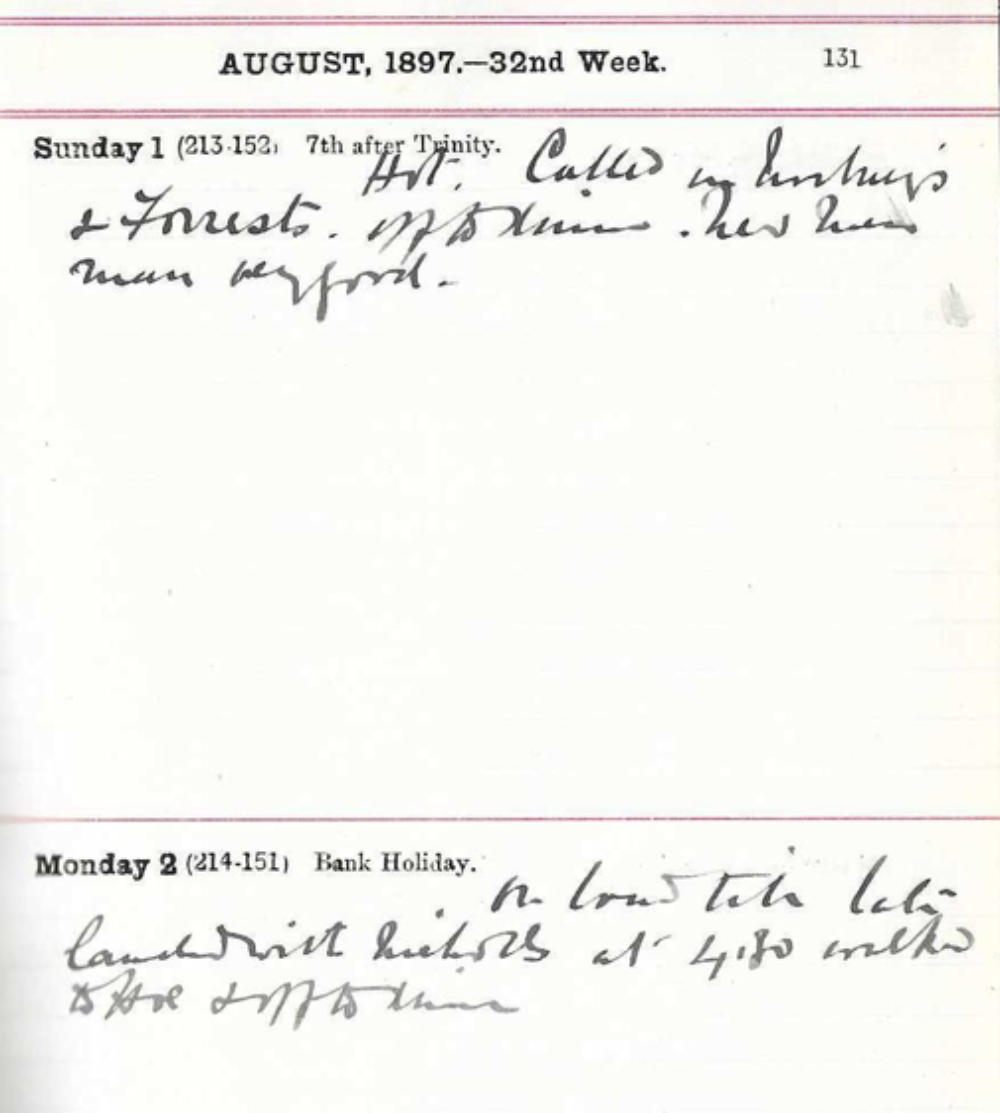 AUGUST, 1897.—32nd Week. 131
Sunday 1 (213-152) 7th after Trinity.
Hot. Called on
& Forrests. off to dinner. new
man very good.
Monday 2 (214-151) Bank Holiday.
on board till late
landed with Nicholls at 4.30 walked
to Hoe & off to dinner